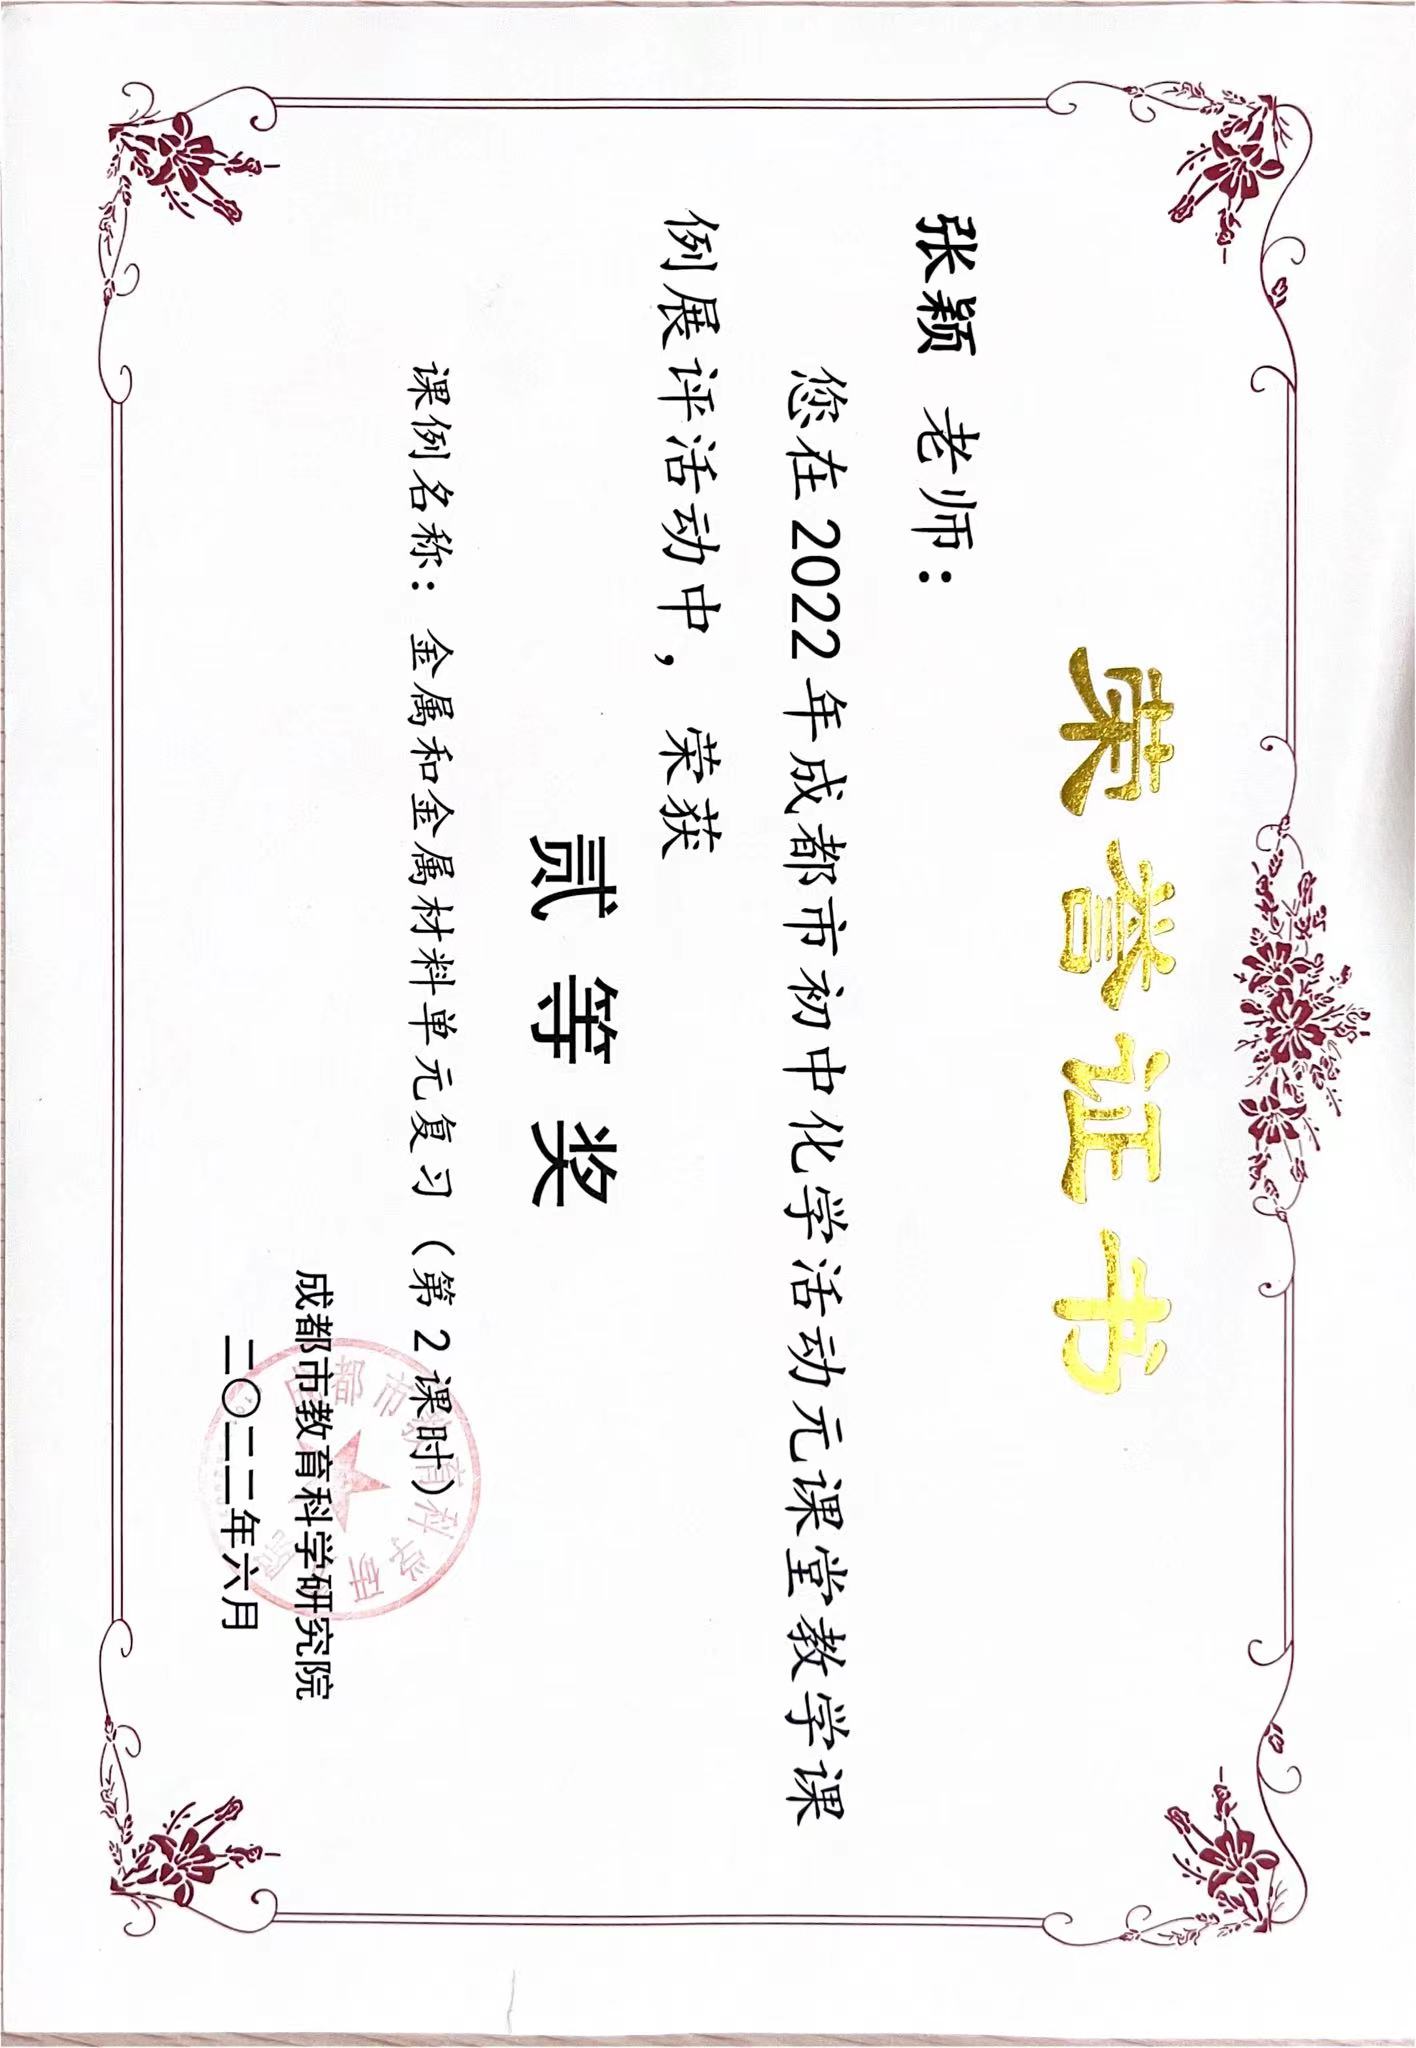 荣誉证书
张颖 老师：
您在2022年成都市初中化学活动元课堂教学课
例展评活动中，荣获
贰等奖
课例名称：金属和金属材料单元复习（第2课时）
成都市教育科学研究院
二〇二二年六月